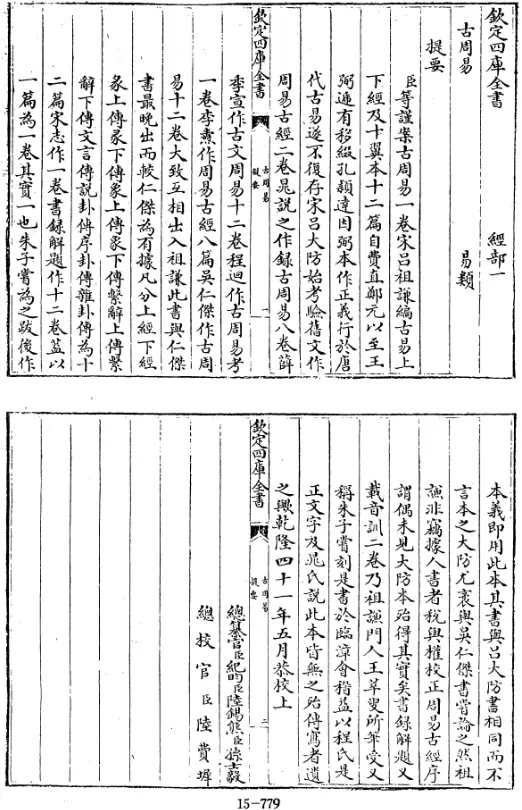 欽定四庫全書　　　經部一
古周易　　　易類
提要
臣等謹案古周易一卷宋呂祖謙編古易上
下經及十翼本十二篇自費直鄭元以至王
弼遞有移綴孔穎達因弼本作正義行於唐
代古易遂不復存宋呂大防始考驗舊文作
周易古經二卷晁説之作錄古周易八卷薛
欽定四庫全書
古周易
提要
一
季宣作古文周易十二卷程迥作古周易考
一卷李燾作周易古經八篇吳仁傑作古周
易十二卷大致互相出入祖謙此書與仁傑
書最晚出而較仁傑為有據凡分上經下經
彖上傳彖下傳象上傳象下傳繫辭上傳繫
辭下傳文言傳説卦傳序卦傳雜卦傳為十
二篇宋志作一卷書錄解題作十二卷蓋以
一篇為一卷其實一也朱子嘗為之跋後作
本義即用此本其書與呂大防書相同而不
言本之大防尤袤與吳仁傑書嘗論之然祖
謙非竊據人書者稅與權校正周易古經序
謂偶未見大防本殆得其實矣書錄解題又
載音訓二卷乃祖謙門人王莘叟所筆受又
稱朱子嘗刻是書於臨漳會稽益以程氏是
正文字及晁氏説此本皆無之殆傳寫者遺
之歟乾隆四十一年五月恭校上
欽定四庫全書
古周易
提要
二
總纂官臣紀昀臣陸錫熊臣孫士毅
總校官臣陸費墀
15-779